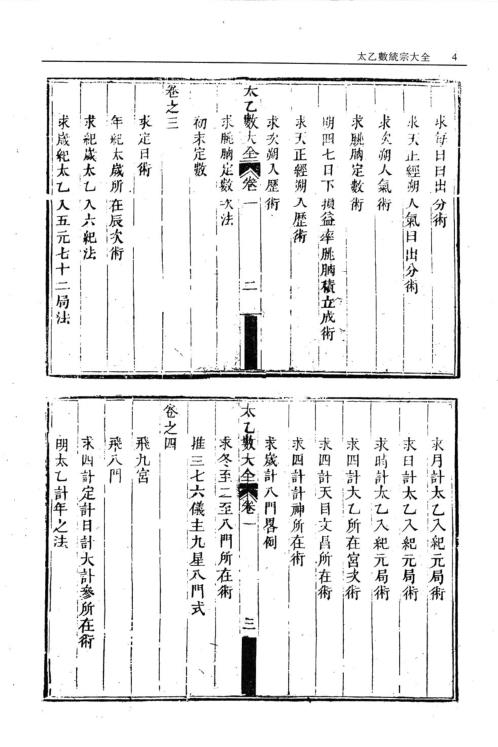 太乙數統宗大全 4
求每日日出分術
求天正經朔入氣日出分術
求次朔入氣術
求朓朒定數術
明四七日下損益率朓朒積立成術
求天正經朔入歷術
求次朔入歷術
太乙數大全 卷一 二
求朓朒定數次法
初末定數
求定日術
年紀太歲所在辰次術
求紀歲太乙入六紀法
求歲紀太乙入五元七十二局法
卷之三
求月計太乙入紀元局術
求日計太乙入紀元局術
求時計太乙入紀元局術
求四計太乙所在宮次術
求四計天目文昌所在術
求四計計神所在術
求歲計八門畧例
太乙數大全 卷一 三
求冬至二至八門所在術
推三七六儀主九星八門式
飛九宮
飛八門
卷之四
求四計定計目計大計參所在術
明太乙計年之法